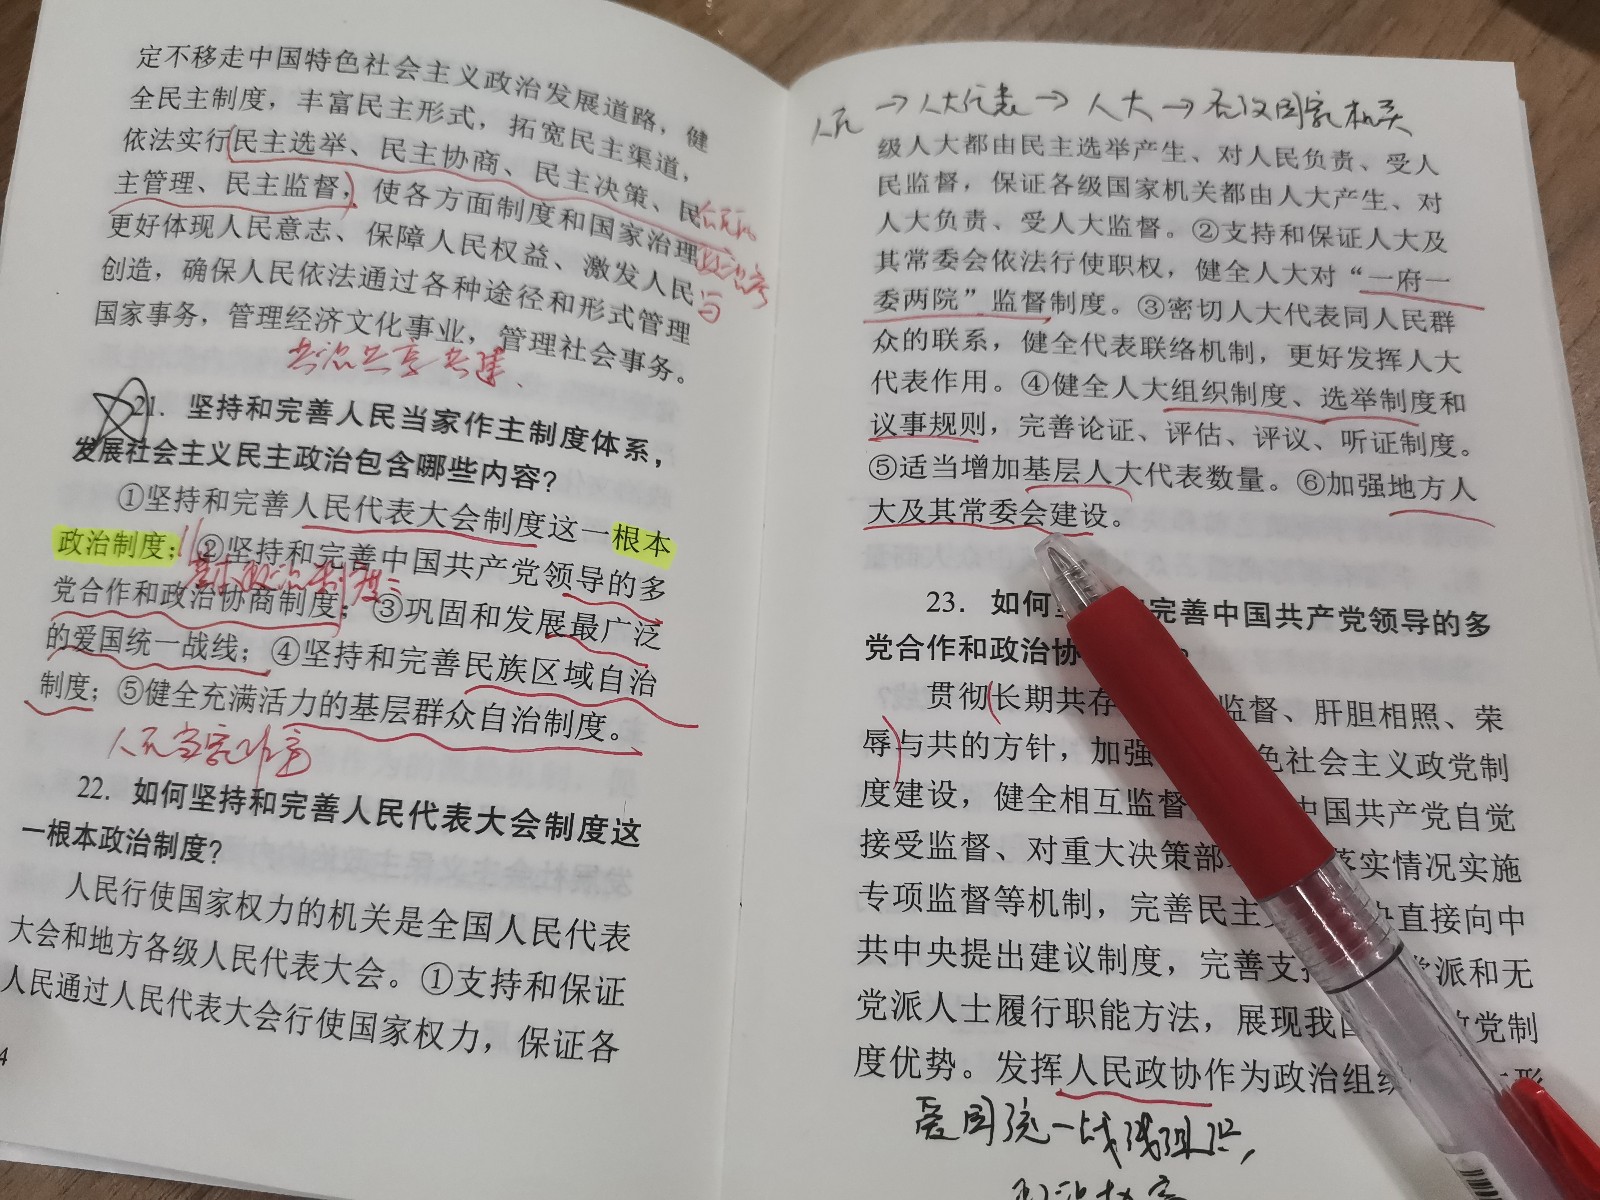 定不移走中国特色社会主义政治发展道路，健
全民主制度，丰富民主形式，拓宽民主渠道，
依法实行民主选举、民主协商、民主决策、民
主管理、民主监督，使各方面制度和国家治理
更好体现人民意志、保障人民权益、激发人民
与
创造，确保人民依法通过各种途径和形式管理
国家事务，管理经济文化事业，管理社会事务。
共治共享共建、
21. 坚持和完善人民当家作主制度体系，
发展社会主义民主政治包含哪些内容？
①坚持和完善人民代表大会制度这一根本
政治制度；②坚持和完善中国共产党领导的多
基本政治制度：
党合作和政治协商制度；③巩固和发展最广泛
的爱国统一战线；④坚持和完善民族区域自治
制度；⑤健全充满活力的基层群众自治制度。
人民当家作主
22. 如何坚持和完善人民代表大会制度这
一根本政治制度？
人民行使国家权力的机关是全国人民代表
大会和地方各级人民代表大会。①支持和保证
人民通过人民代表大会行使国家权力，保证各
4
人民→人大代表→人大→各级国家机关
级人大都由民主选举产生、对人民负责、受人
民监督，保证各级国家机关都由人大产生、对
人大负责、受人大监督。②支持和保证人大及
其常委会依法行使职权，健全人大对“一府一
委两院”监督制度。③密切人大代表同人民群
众的联系，健全代表联络机制，更好发挥人大
代表作用。④健全人大组织制度、选举制度和
议事规则，完善论证、评估、评议、听证制度。
⑤适当增加基层人大代表数量。⑥加强地方人
大及其常委会建设。
23. 如何 完善中国共产党领导的多
党合作和政治协
贯彻长期共存 监督、肝胆相照、荣
辱与共的方针，加强 色社会主义政党制
度建设，健全相互监督 中国共产党自觉
接受监督、对重大决策部 落实情况实施
专项监督等机制，完善民主 直接向中
共中央提出建议制度，完善支 党派和无
党派人士履行职能方法，展现我国 政党制
度优势。发挥人民政协作为政治组织
爱国统一战线组织，